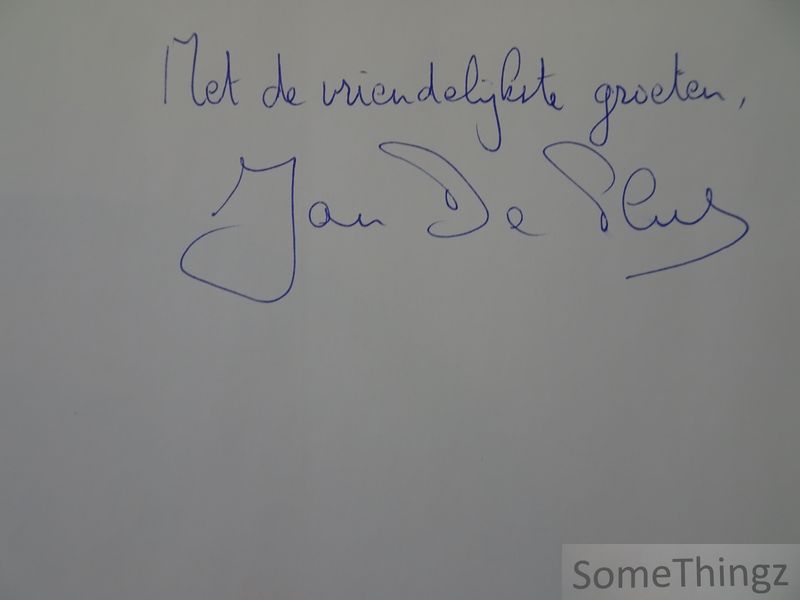 Met de vriendelijkste groeten,
Jan De Plus
SomeThingz